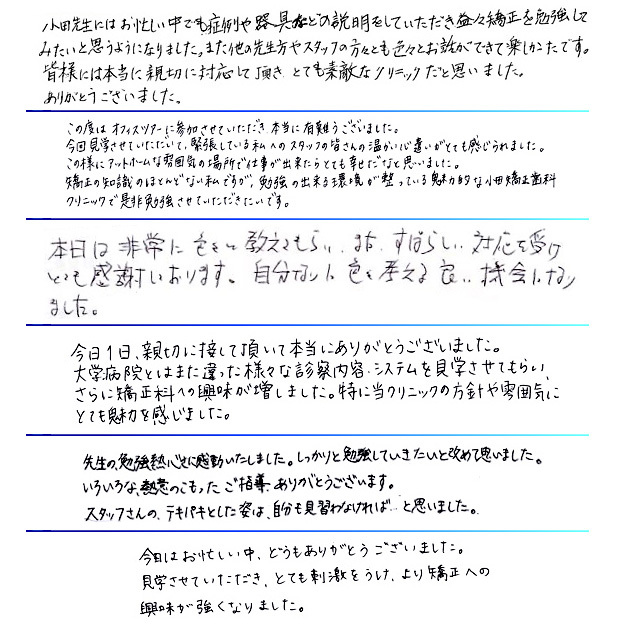 小田先生にはお忙しい中でも症例や器具などの説明をしていただき益々矯正を勉強して
みたいと思うようになりました。また他の先生方やスタッフの方々とも色々とお話ができて楽しかったです。
皆様には本当に親切に対応して頂き、とても素敵なクリニックだと思いました。
ありがとうございました。
この度はオフィスツアーに参加させていただき、本当に有難うございました。
今回見学させていただいて、緊張している私へのスタッフの皆さんの温かい心遣いがとても感じられました。
この様にアットホームな雰囲気の場所で仕事が出来たらとても幸せだなと思いました。
矯正の知識のほとんどない私ですが、勉強の出来る環境が整っている魅力的な小田矯正歯科
クリニックで是非勉強させていただきたいです。
本日は非常に色々と教えてもらい、また、すばらしい対応を受け
とても感謝しております。自分なりに色々考える良い機会になり
ました。
今日1日、親切に接して頂いて本当にありがとうございました。
大学病院とはまた違った様々な診察内容・システムを見学させてもらい、
さらに矯正科への興味が増しました。特に当クリニックの方針や雰囲気に
とても魅力を感じました。
先生の、勉強熱心さに感動いたしました。しっかりと勉強していきたいと改めて思いました。
いろいろな、熱意のこもったご指導、ありがとうございます。
スタッフさんの、テキパキとした姿は、自分も見習わなければ…と思いました。
今日はお忙しい中、どうもありがとうございました。
見学させていただき、とても刺激をうけ、より矯正への
興味が強くなりました。